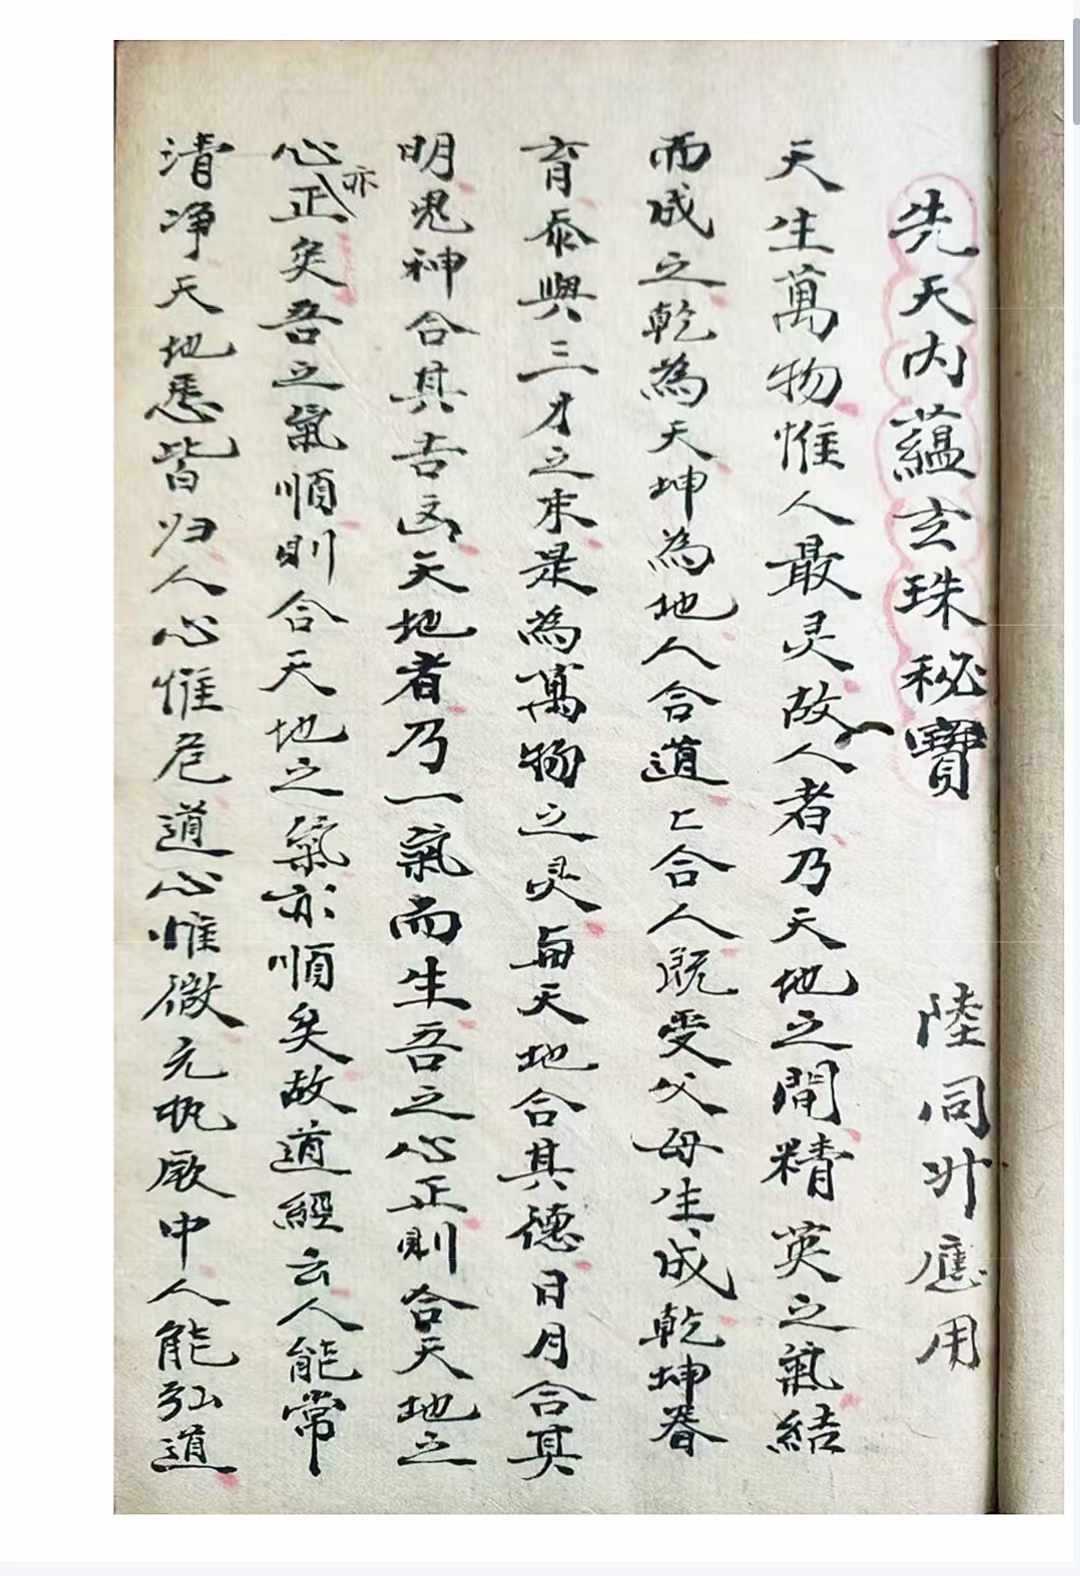 先天內蘊玄珠秘寶 陸同州應用
天生萬物惟人最灵故人者乃天地之間精英之氣結
而成之乾為天坤為地人合道上合人既受父母生成乾坤眷
育忝與三才之末是為萬物之灵每天地合其德日月合其
明鬼神合其吉凶天地者乃一氣而生吾之心正則合天地之
心亦正矣吾之氣順則合天地之氣亦順矣故道經云人能常
清净天地悉皆归人心惟危道心惟微允执厥中人能弘道